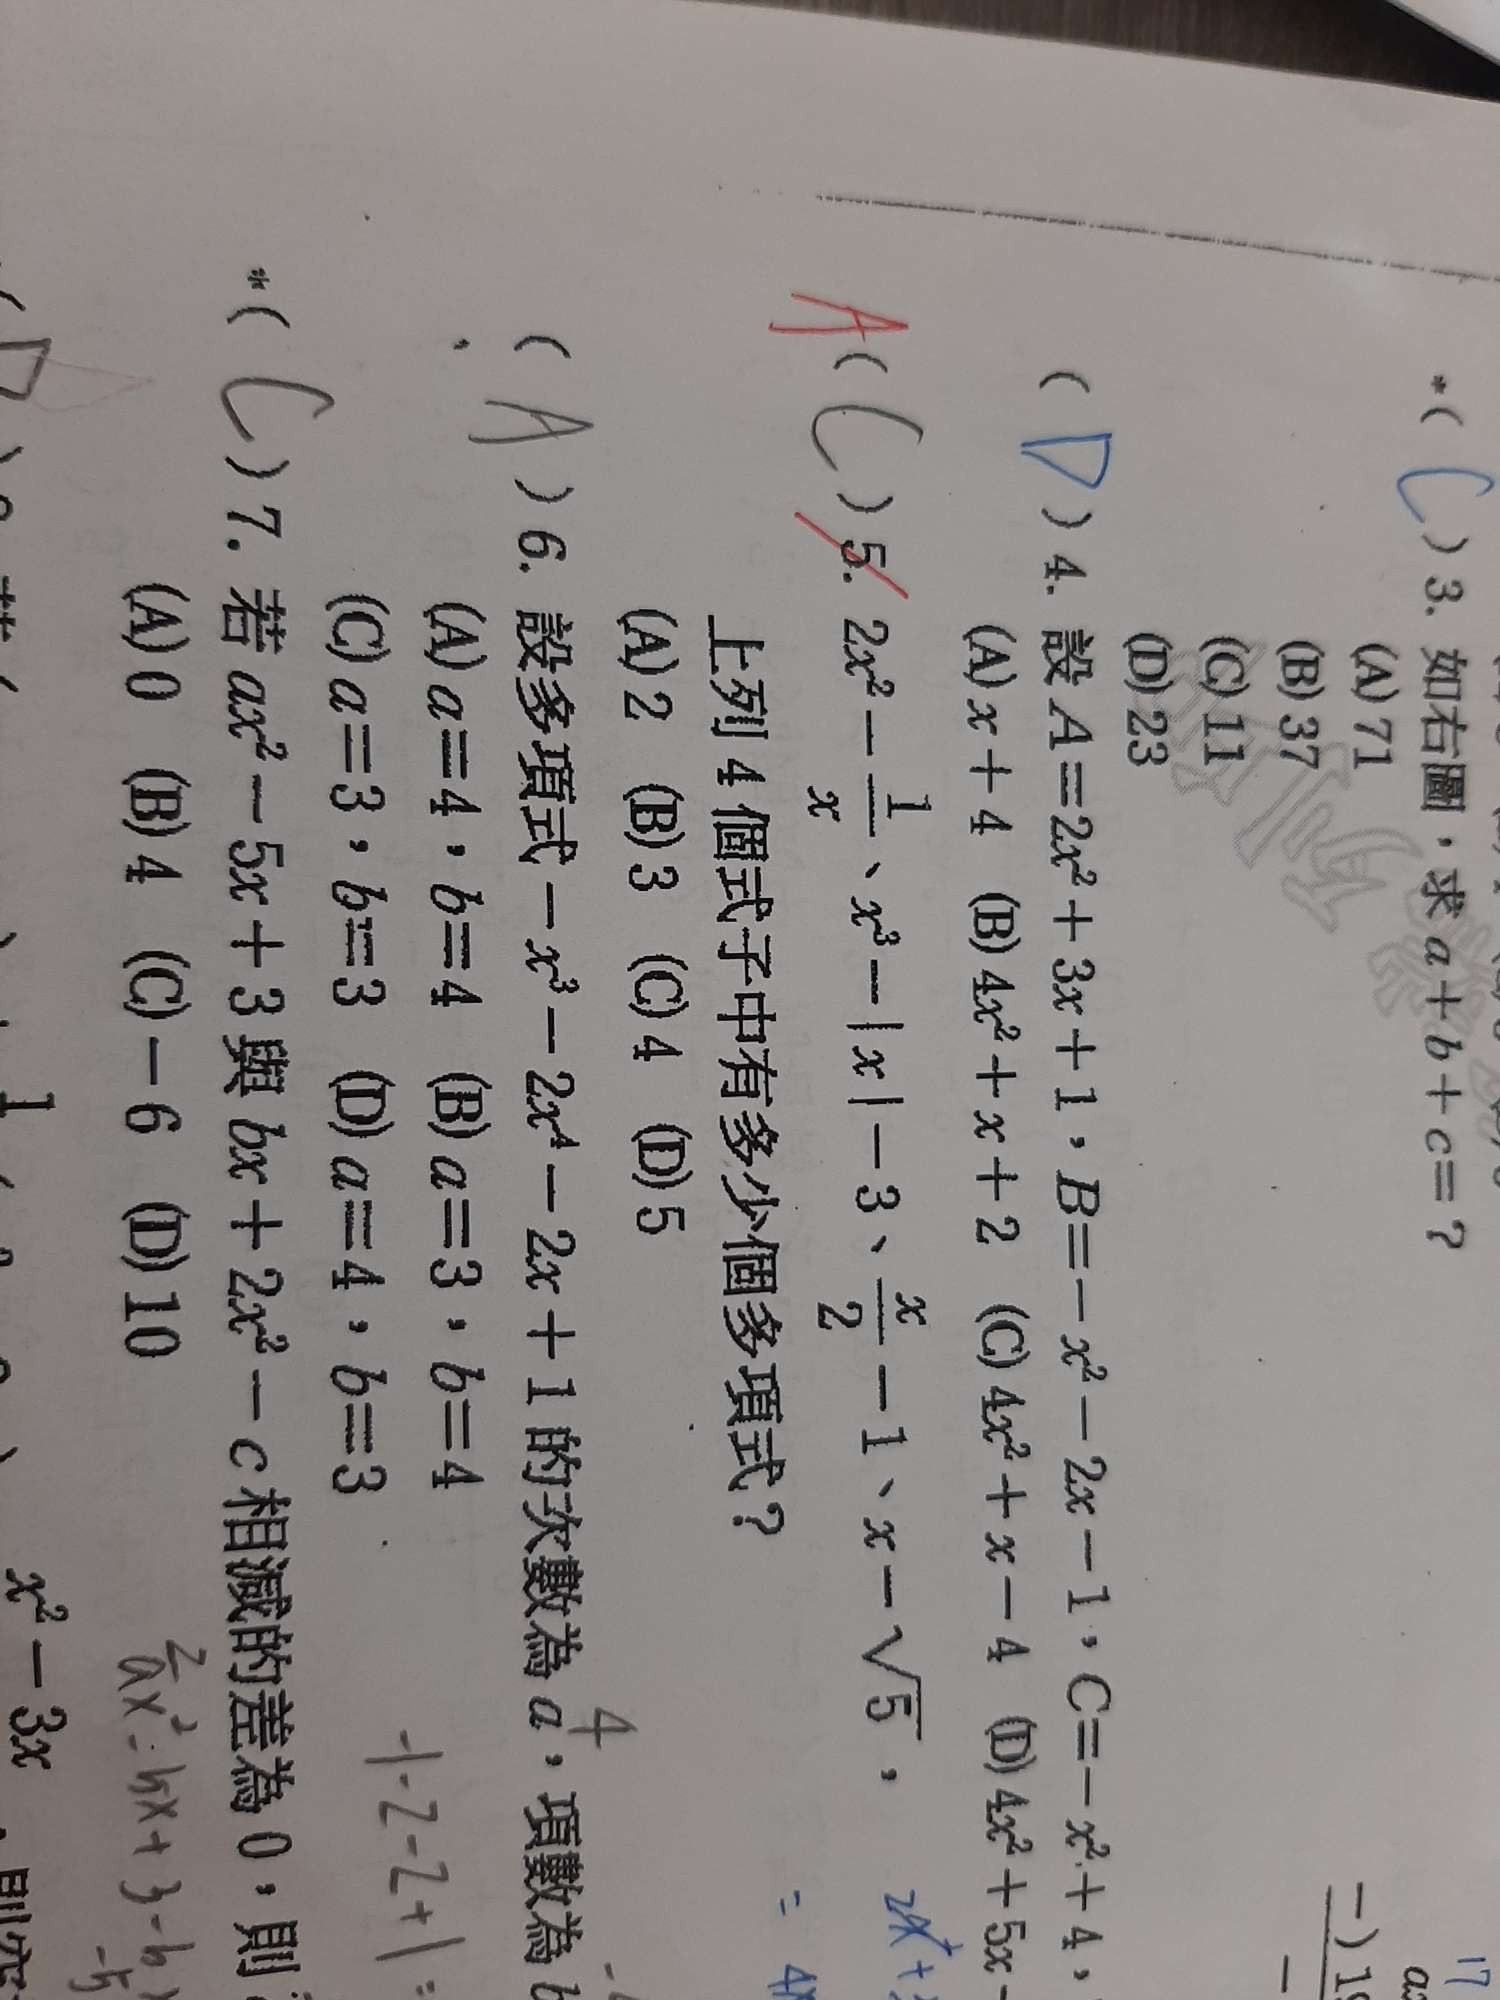 *( C ) 3. 如右圖，求 a+b+c=？
(A) 71
(B) 37
(C) 11
(D) 23
17
−) 19
( D ) 4. 設 A=2x²+3x+1，B=−x²−2x−1，C=−x²+4，
(A) x+4 (B) 4x²+x+2 (C) 4x²+x−4 (D) 4x²+5x−
A ( C ) 5. 2x²−1/x、x³−|x|−3、x/2−1、x−√5，
上列 4 個式子中有多少個多項式？
(A) 2 (B) 3 (C) 4 (D) 5
( A ) 6. 設多項式 −x³−2x⁴−2x+1 的次數為 a，項數為 b
4
(A) a=4，b=4 (B) a=3，b=4
(C) a=3，b=3 (D) a=4，b=3
-1-2-2+1=
*( C ) 7. 若 ax²−5x+3 與 bx+2x²−c 相減的差為 0，則
(A) 0 (B) 4 (C) −6 (D) 10
2
ax²-bx+3-b
-5
( D )
x²−3x